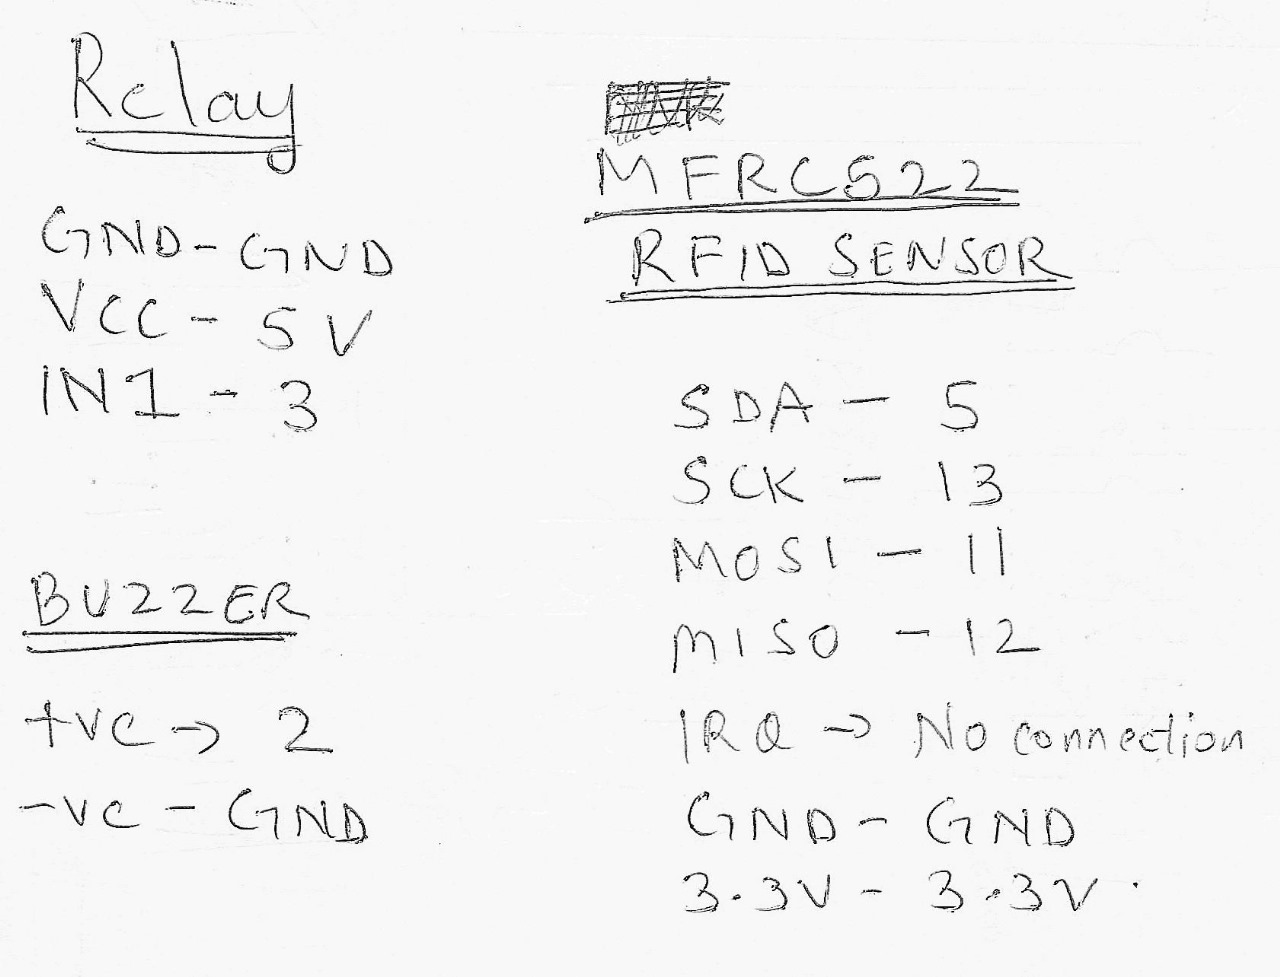 Relay
GND - GND
VCC - 5V
IN1 - 3
BUZZER
+ve → 2
-ve - GND
MFRC522
RFID SENSOR
SDA - 5
SCK - 13
MOSI - 11
MISO - 12
IRQ → No connection
GND - GND
3.3V - 3.3V